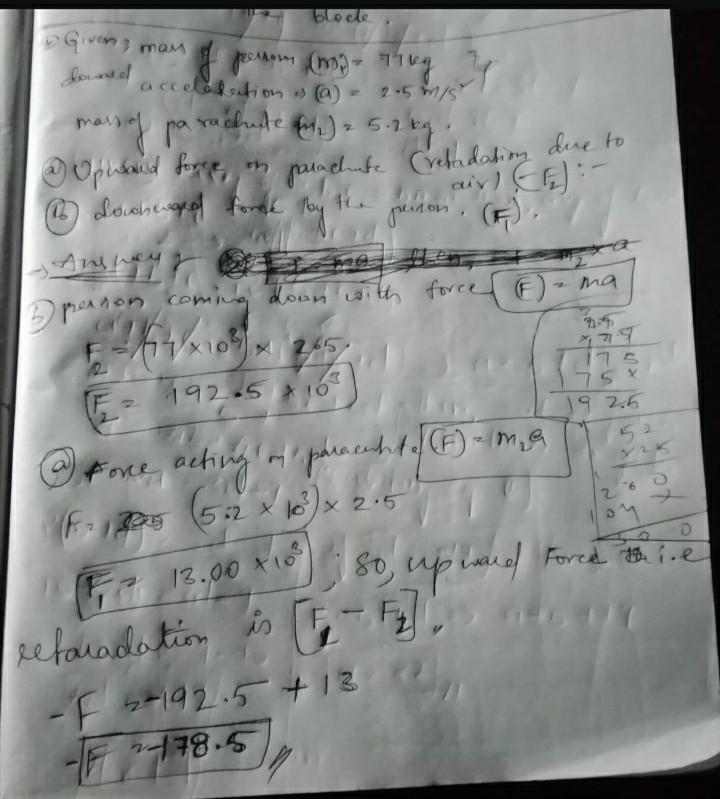 block.
Given; mass of person (m1) = 77 kg
accelaration (a) = 2.5 m/s²
mass of parachute (m2) = 5.2 kg.
(a) Upward force on parachute (retadation due to
air) (-F2) :-
(b) downward force by the person. (F1).
→ Answer
b) person coming down with force (F) = ma
F2 = (77 x 10³) x 265.
F2 = 192.5 x 10³
2.5
x 77
175
175 x
192.5
(a) Force acting on paracuhte (F) = m2a
F = (5.2 x 10³) x 2.5
52
x 25
260
104
F1 = 13.00 x 10³ ; so, upward Force i.e
retaradation is [F1 - F2] "
- F = -192.5 + 13
- F = -178.5 //